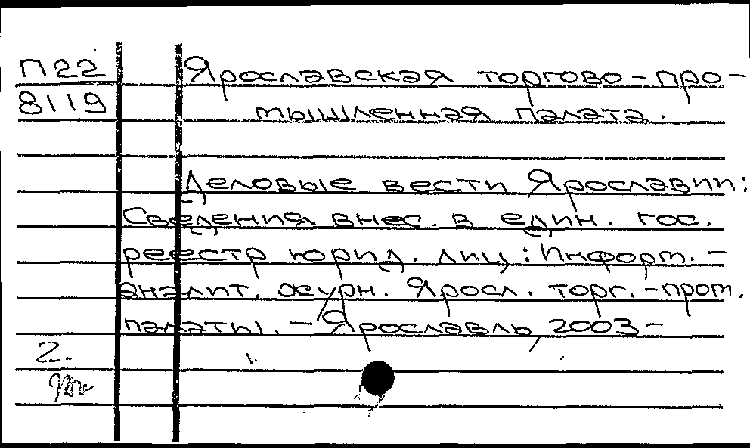 П22 Ярославская торгово-про-
8119 мышленная палата.
Деловые вести Ярославии:
Сведения внес. в един. гос.
реестр юрид. лиц: Информ.-
аналит. журн. Яросл. торг.-пром.
палаты. - Ярославль, 2003-
2.